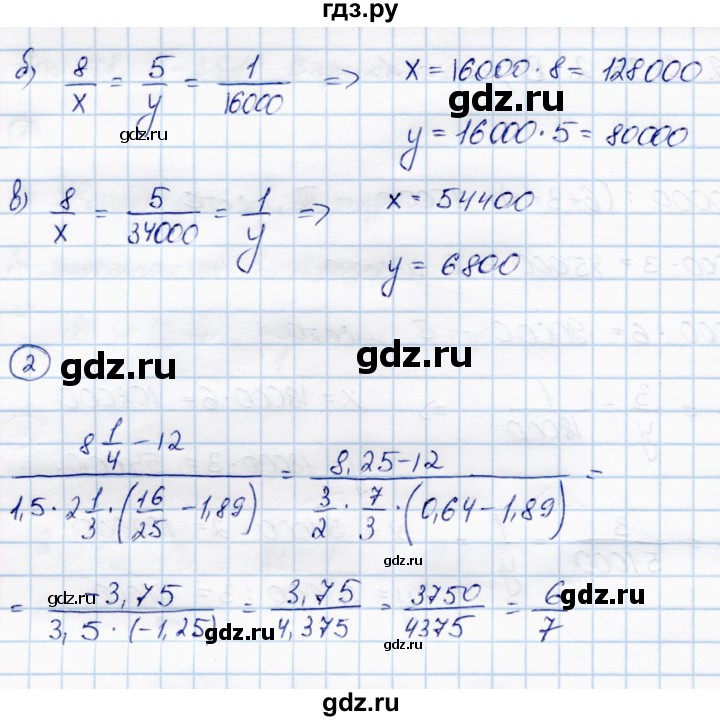 гдз.ру
б) 8/x = 5/y = 1/16000 => x = 16000 · 8 = 128000
gdz.ru
gdz.ru
y = 16000 · 5 = 80000
в) 8/x = 5/34000 = 1/y => x = 54400
y = 6800
gdz.ru
2 gdz.ru
gdz.ru
(8 1/4 - 12)/(1,5 · 2 1/3 · (16/25 - 1,89)) = (8,25 - 12)/(3/2 · 7/3 · (0,64 - 1,89)) =
= (-3,75)/(3,5 · (-1,25)) = 3,75/4,375 = 3750/4375 = 6/7
gdz.ru
gdz.ru
gdz.ru
gdz.ru
gdz.ru